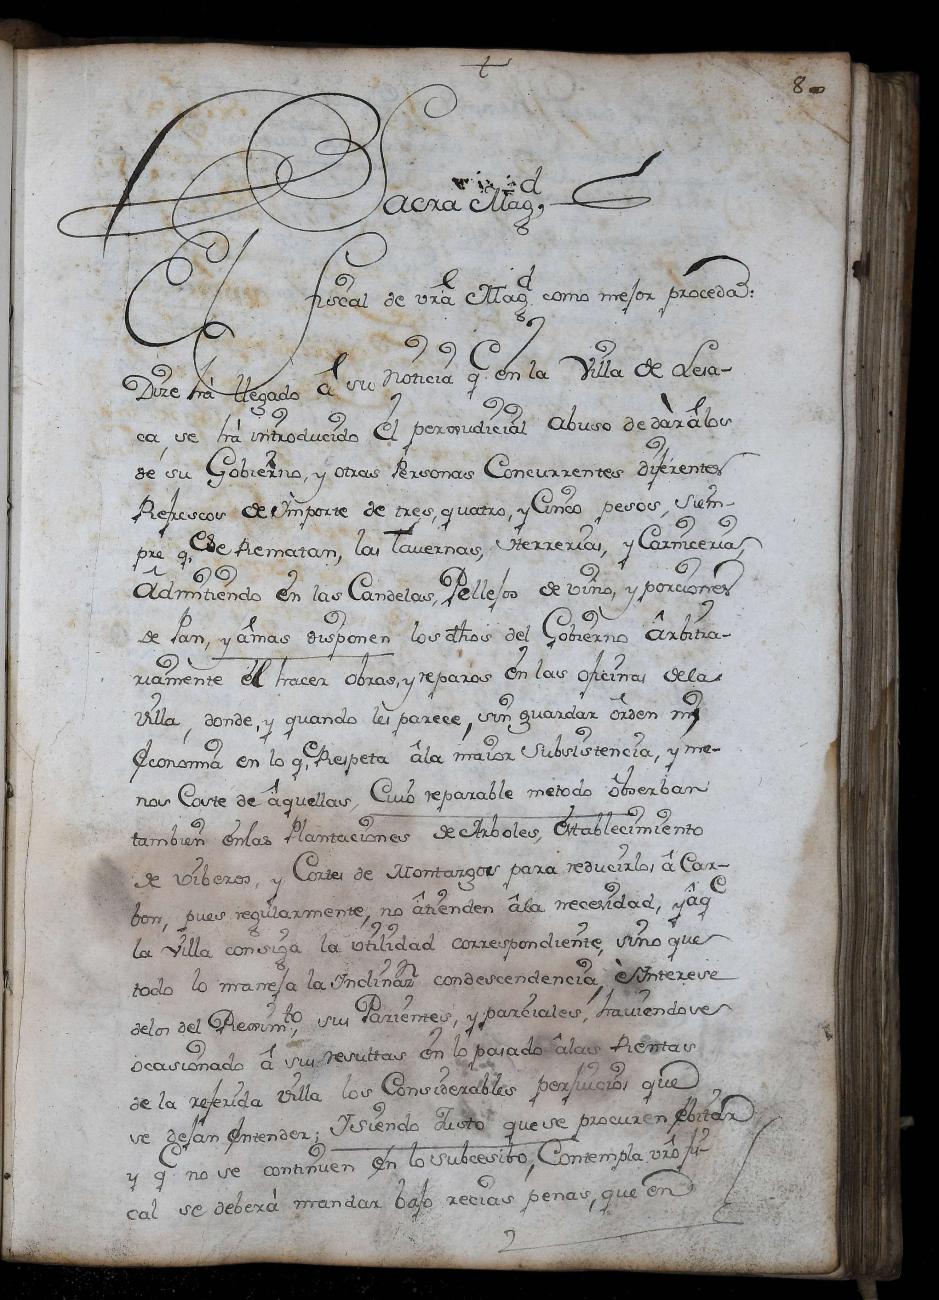 +
8
Sacra Magd,
El fiscal de vrã Magd como mejor proceda:
Dize hà llegado â su noticia q en la Villa de Lesa-
ca se hà introducido el perjudicial abuso de dàr âlos
de su Gobierno, y otras Personas Concurrentes diferentes
Refrescos de Ymporte de tres, quatro, y Cinco pesos, siem-
pre q se Rematan, las Tavernas, Herrerias, y Carnicerias,
Admitiendo en las Candelas, Pellejos de vino, y porciones
de Pan, y âmas disponen los dhos del Gobierno ârbitra-
riamente el hacer obras, y reparos en las oficinas dela
villa, donde, y quando les parece, sin guardar ôrden ni
Economia en lo q Respeta âla maior Subsistencia, y me-
nos Coste de âquellas, Cuio reparable metodo ôbserban
tambien enlas Plantaciones de Arboles, Establecimiento
de Viberos, y Cortes de Montazgos para reducirlos â Car-
bon, pues regularmente, no âtienden âla necesidad, y âq
la Villa consiga la vtilidad correspondiente, sino que
todo lo maneja la Inclinan condescendencia, è Interese
delos del Regimto, sus Parientes, y parciales, haviendoses
ocasionado â sus resultas en lo pasado âlas Rentas
de la referida villa los Considerables perjuicios que
se dejan Entender; Ysiendo Justo que se procuren Ebitar
y q no se continuen en lo subcesibo, Contempla vrõ fis-
cal se deberà mandar bajo recias penas, que en